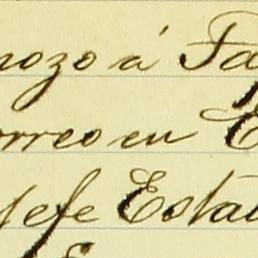 nozo á Fa
orreo en E
Jefe Estad